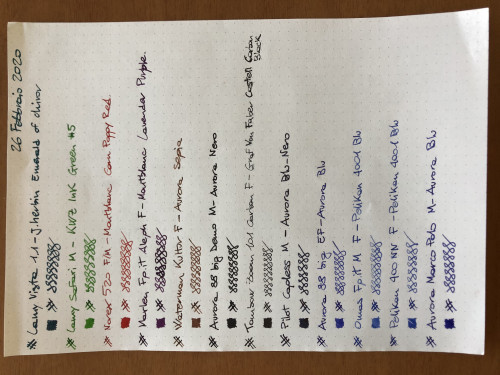 26 Febbraio 2020
# Lamy Vista 1.1 - J. herbin Emerald of chivor
# Lamy Safari M - KWZ Ink Green #5
# Norex 520 F/M - Montblanc Corn Poppy Red
# Marlen Fp.it Aleph F - Montblanc Lavender Purple
# Waterman Kultor F - Aurora Sepia
# Aurora 88 big Demo M - Aurora Nero
# Tombow Zoom 101 Carbon F - Graf Von Faber Castell Carbon Black
# Pilot Capless M - Aurora Blu-Nero
# Aurora 88 big EF - Aurora Blu
# Omas Fp.it M F - Pelikan 4001 Blu
# Pelikan 400 NN F - Pelikan 4001 Blu
# Aurora Marco Polo M - Aurora Blu